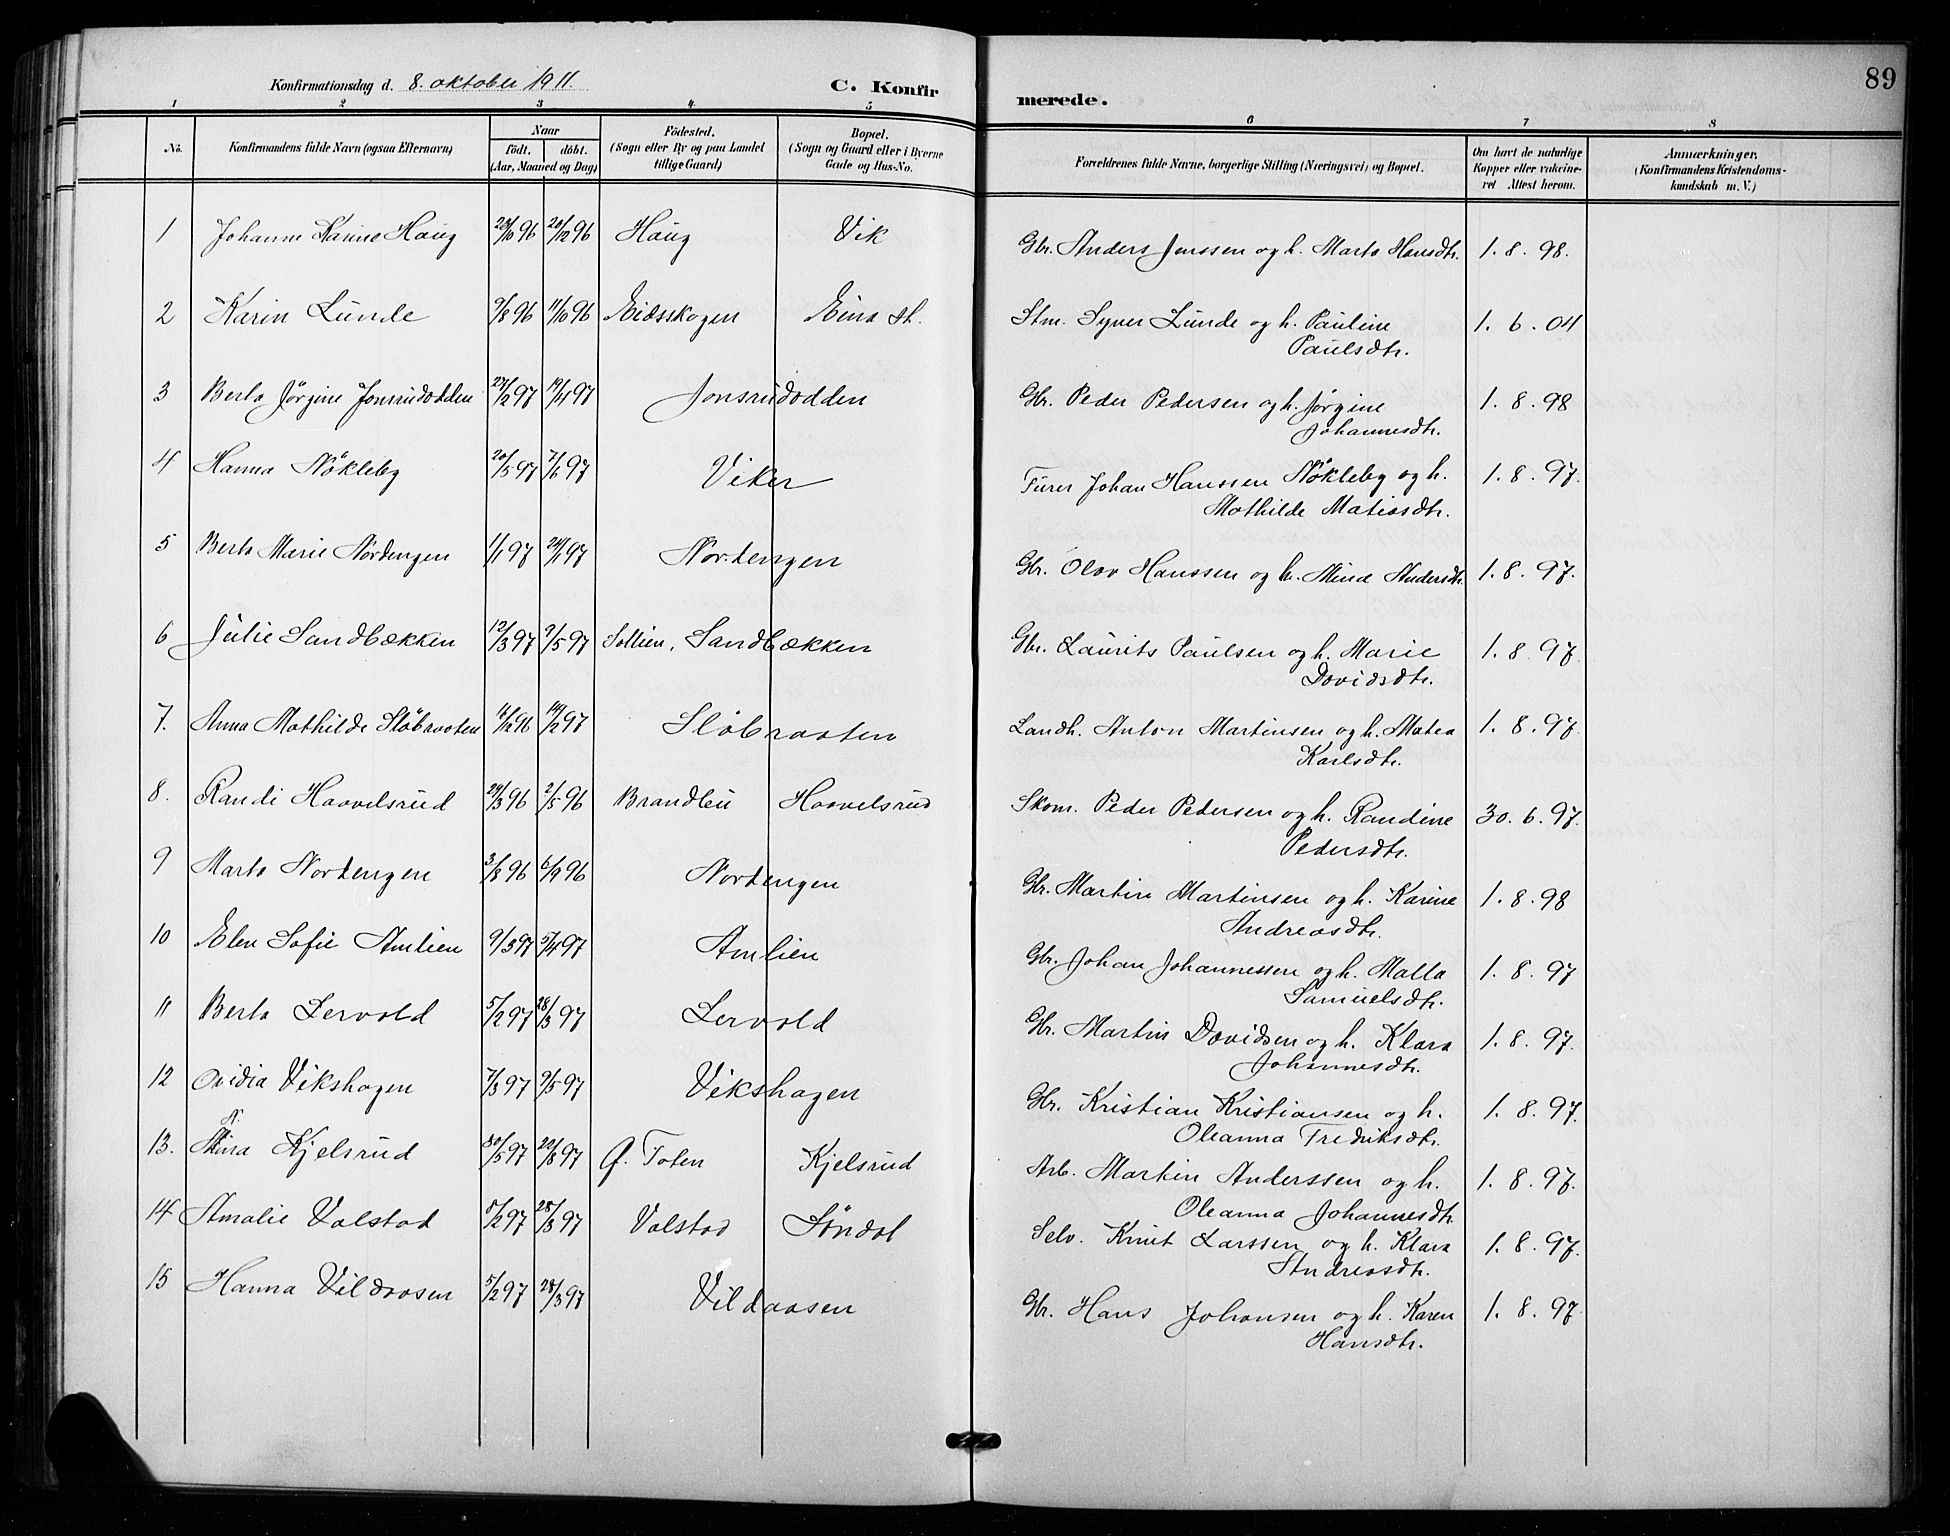 89
Konfirmationsdag d. 8. oktober 1911. C. Konfir
merede.
1 2 3 4 5 6 7 8
No. Konfirmandens fulde Navn (ogsaa Efternavn) Naar födt. döbt. (Aar, Maaned og Dag) Födested. (Sogn eller By og paa Landet tillige Gaard) Bopæl. (Sogn og Gaard eller i Byerne Gade og Hus-No.
Forældrenes fulde Navne, borgerlige Stilling (Næringsvei) og Bopæl. Om havt de naturlige Kopper eller vakcineret Attest herom. Anmærkninger. (Konfirmandens Kristendomskundskab m. V.)
1 Johanne Karine Haug 23/10 96 20/12 96 Haug Vik Gbr. Anders Jenssen og h. Marta Hansdtr. 1. 8. 98.
2 Karin Lunde 9/8 96 11/10 96 Eidsskogen Eina st. Stm. Syver Lunde og h. Pauline
Paulsdtr. 1. 6. 04
3 Berta Jörgine Jonsrudodden 27/2 97 19/4 97 Jonsrudodden Gbr. Peder Pedersen og h. Jörgine
Johannesdtr. 1. 8. 98
4 Hanna Nökleby 20/5 97 7/6 97 Viker Furer Johan Hanssen Nökleby og h.
Mathilde Matiasdtr. 1. 8. 97.
5 Berta Marie Nordengen 1/1 97 24/1 97 Nordengen Gbr. Olav Hanssen og h. Mina Andersdtr. 1. 8. 97.
6 Julie Sandbækken 12/3 97 9/5 97 Sollien, Sandbækken Gbr. Laurits Paulsen og h. Marie
Davidsdtr. 1. 8. 97.
7. Anna Mathilde Slöbraaten 16/12 96 14/2 97 Slöbraaten Landh. Anton Martinsen og h. Matea
Karlsdtr. 1. 8. 97.
8. Randi Haavelsrud 24/3 96 2/5 96 Brandbu Haavelsrud Skom. Peder Pedersen og h. Randine
Pedersdtr. 30. 6. 97.
9 Marta Nordengen 3/8 96 6/9 96 Nordengen Gbr. Martin Martinsen og h. Karine
Andreasdtr. 1. 8. 98
10 Elen Sofie Amlien 9/3 97 5/4 97 Amlien Gbr. Johan Johannessen og h. Malla
Samuelsdtr. 1. 8. 97
11 Berta Lervold 5/2 97 28/3 97 Lervold Gbr. Martin Davidsen og h. Klara
Johannesdtr. 1. 8. 97.
12 Ovidia Vikshagen 7/3 97 9/5 97 Vikshagen Gbr. Kristian Kristiansen og h.
Oleanna Fredriksdtr. 1. 8. 97.
13. Kjelsrud 30/5 97 22/8 97 Toten Kjelsrud Arb. Martin Anderssen og h.
Oleanna Johannesdtr. 1. 8. 97.
14 Amalie Valstad 5/2 97 28/3 97 Valstad Söndal Selv. Knut Larssen og h. Klara
Andreasdtr. 1. 8. 97.
15 Hanna Vildaasen 5/2 97 28/3 97 Vildaasen Gbr. Hans Johansen og h. Karen
Hansdtr. 1. 8. 97